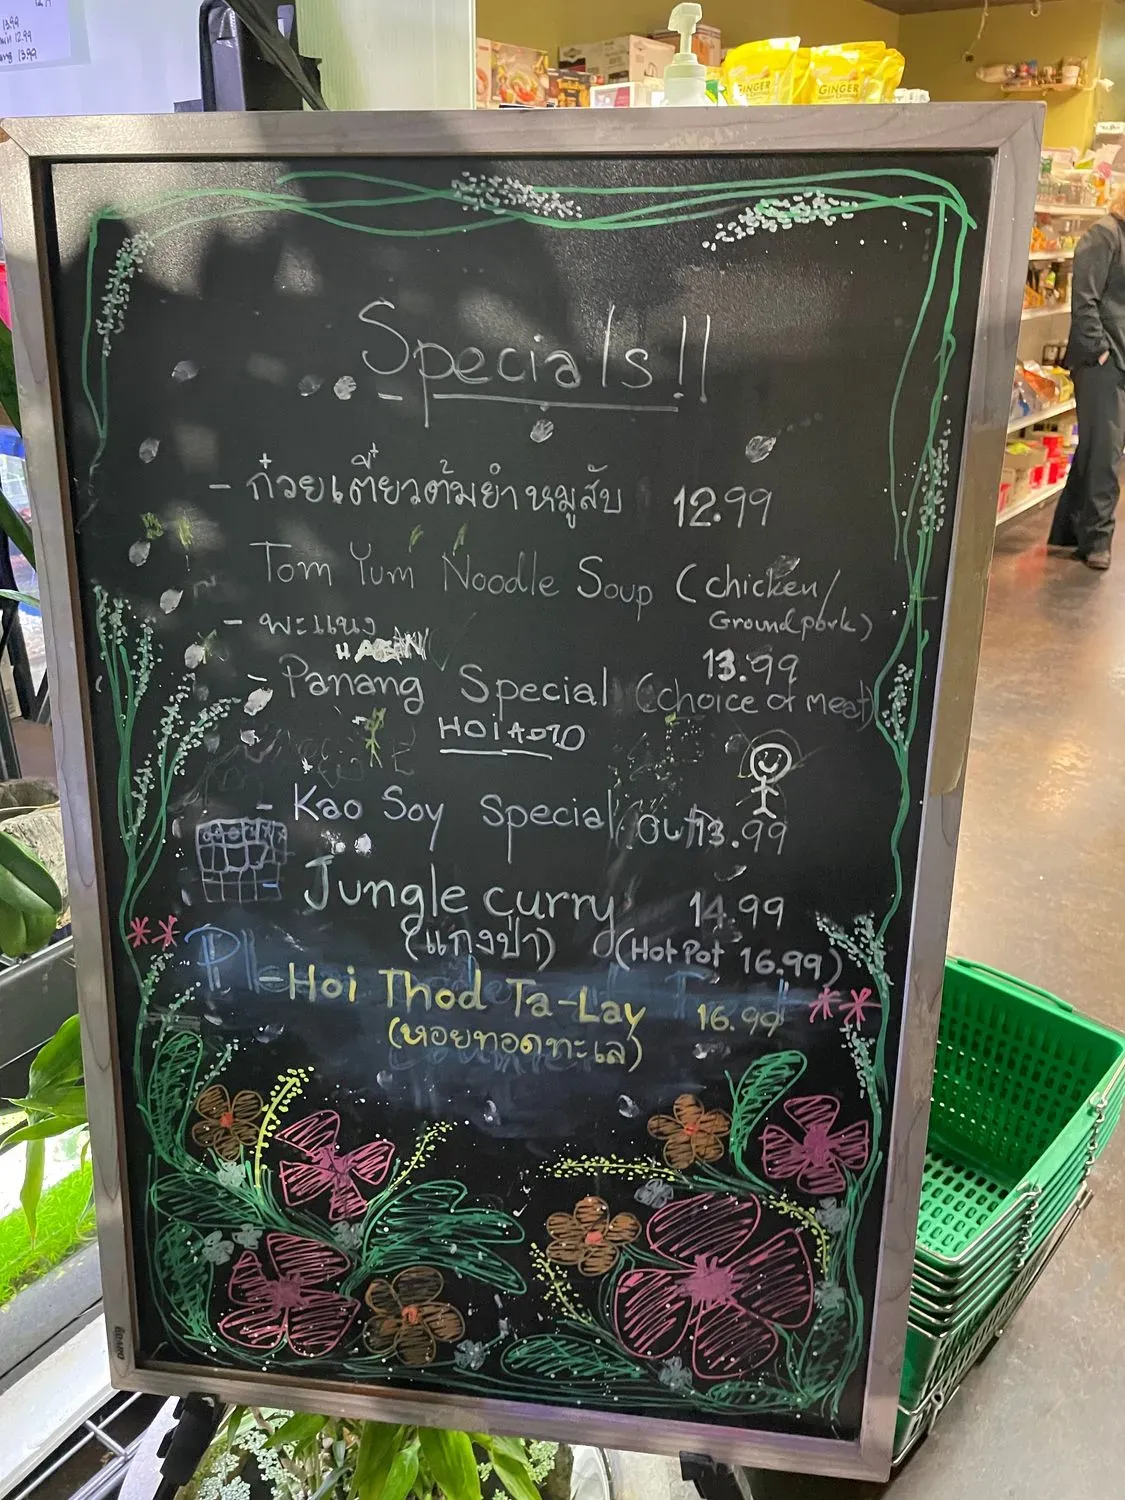 13.99
12.99
13.99
GINGER
GINGER
Specials!!
- ก๋วยเตี๋ยวต้มยำหมูสับ 12.99
Tom Yum Noodle Soup (chicken/
Ground pork)
- พะแนง
13.99
- Panang Special (choice of meat)
- Kao Soy Special 13.99
Jungle curry 14.99
(แกงป่า) (Hot Pot 16.99)
- Hoi Thod Ta-Lay 16.99
(หอยทอดทะเล)